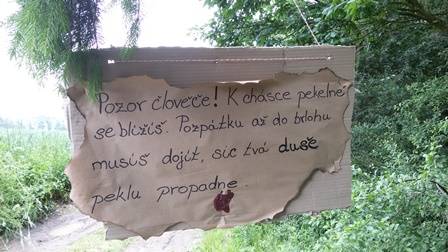 Pozor člověče! K chásce pekelné
se blížíš. Pozpátku až do brlohu
musíš dojít, sic tvá duše
peklu propadne.